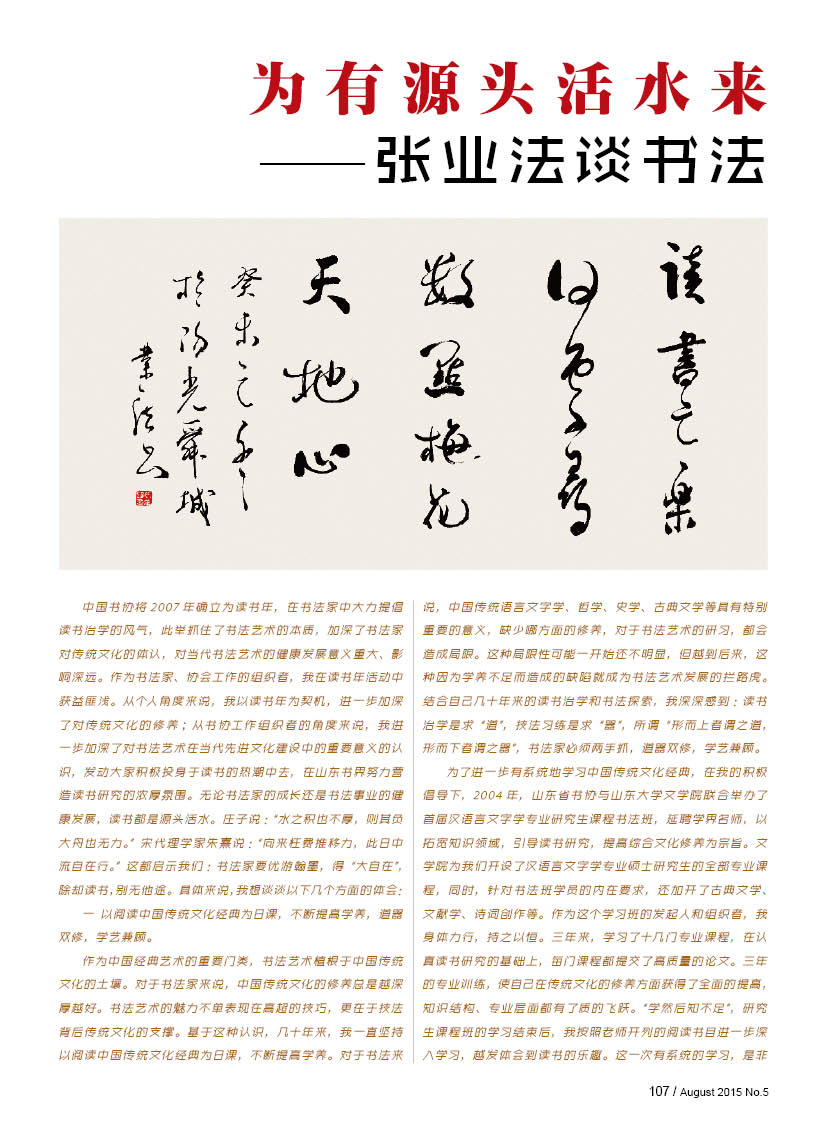 为有源头活水来
——张业法谈书法
讀書之樂
何處尋
數點梅花
天地心
癸未之
於陽光舜城
業法書
中国书协将 2007 年确立为读书年，在书法家中大力提倡
读书治学的风气，此举抓住了书法艺术的本质，加深了书法家
对传统文化的体认，对当代书法艺术的健康发展意义重大、影
响深远。作为书法家、协会工作的组织者，我在读书年活动中
获益匪浅。从个人角度来说，我以读书年为契机，进一步加深
了对传统文化的修养；从书协工作组织者的角度来说，我进
一步加深了对书法艺术在当代先进文化建设中的重要意义的认
识，发动大家积极投身于读书的热潮中去，在山东书界努力营
造读书研究的浓厚氛围。无论书法家的成长还是书法事业的健
康发展，读书都是源头活水。庄子说：“水之积也不厚，则其负
大舟也无力。” 宋代理学家朱熹说：“向来枉费推移力，此日中
流自在行。” 这都启示我们：书法家要优游翰墨，得 “大自在”，
除却读书，别无他途。具体来说，我想谈谈以下几个方面的体会：
一 以阅读中国传统文化经典为日课，不断提高学养，道器
双修，学艺兼顾。
作为中国经典艺术的重要门类，书法艺术植根于中国传统
文化的土壤。对于书法家来说，中国传统文化的修养总是越深
厚越好。书法艺术的魅力不单表现在高超的技巧，更在于技法
背后传统文化的支撑。基于这种认识，几十年来，我一直坚持
以阅读中国传统文化经典为日课，不断提高学养。对于书法来
说，中国传统语言文字学、哲学、史学、古典文学等具有特别
重要的意义，缺少哪方面的修养，对于书法艺术的研习，都会
造成局限。这种局限性可能一开始还不明显，但越到后来，这
种因为学养不足而造成的缺陷就成为书法艺术发展的拦路虎。
结合自己几十年来的读书治学和书法探索，我深深感到：读书
治学是求 “道”，技法习练是求 “器”，所谓 “形而上者谓之道，
形而下者谓之器”，书法家必须两手抓，道器双修，学艺兼顾。
为了进一步有系统地学习中国传统文化经典，在我的积极
倡导下，2004 年，山东省书协与山东大学文学院联合举办了
首届汉语言文字学专业研究生课程书法班，延聘学界名师，以
拓宽知识领域，引导读书研究，提高综合文化修养为宗旨。文
学院为我们开设了汉语言文字学专业硕士研究生的全部专业课
程，同时，针对书法班学员的内在要求，还加开了古典文学、
文献学、诗词创作等。作为这个学习班的发起人和组织者，我
身体力行，持之以恒。三年来，学习了十几门专业课程，在认
真读书研究的基础上，每门课程都提交了高质量的论文。三年
的专业训练，使自己在传统文化的修养方面获得了全面的提高，
知识结构、专业层面都有了质的飞跃。“学然后知不足”，研究
生课程班的学习结束后，我按照老师开列的阅读书目进一步深
入学习，越发体会到读书的乐趣。这一次有系统的学习，是非
107 / August 2015 No.5